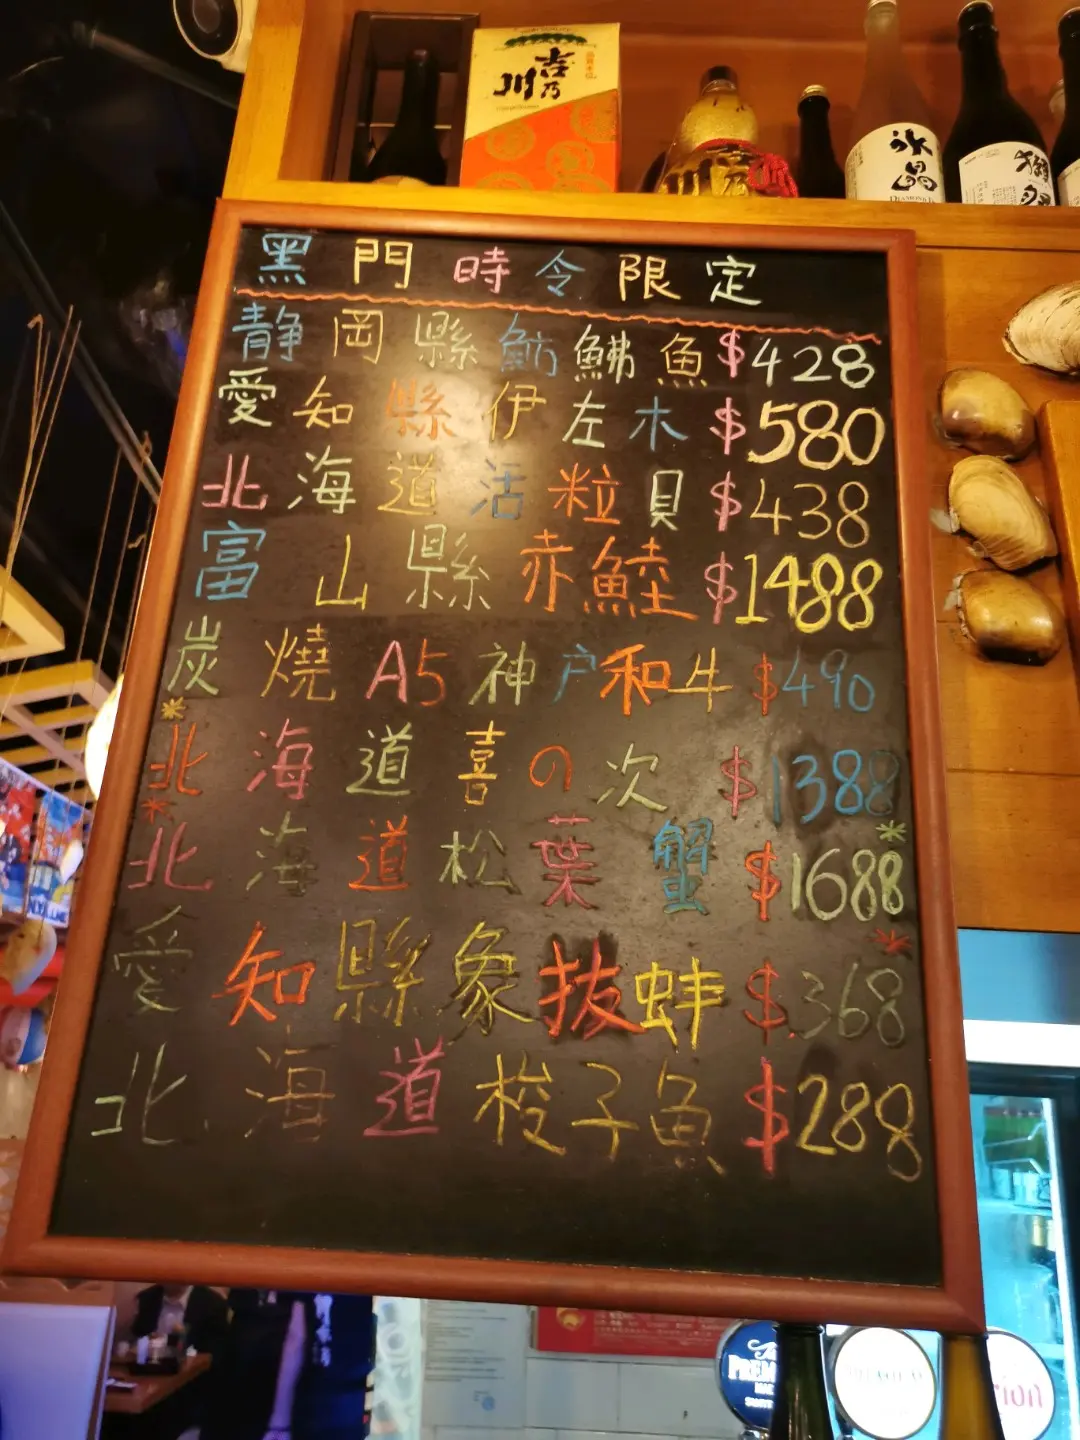 吉乃
川
氷晶
獺祭
黑門時令限定
靜岡縣魴鮄魚$428
愛知縣伊左木$580
北海道活粒貝$438
富山縣赤鯥$1488
炭燒A5神户和牛$490
北海道喜の次$1388
北海道松葉蟹$1688
愛知縣象拔蚌$368
北海道梭子魚$288
PREM